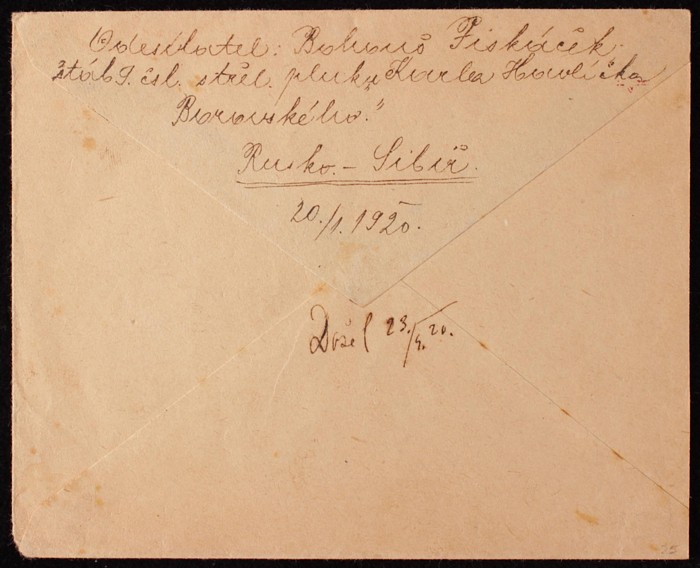 Odesílatel: Bohouš Fiskáček.
štáb 9. čsl. střel. pluku „Karla Havlíčka
Borovského."
Rusko. – Sibiř.
20./1. 1920.
Došel 23./4. 20.